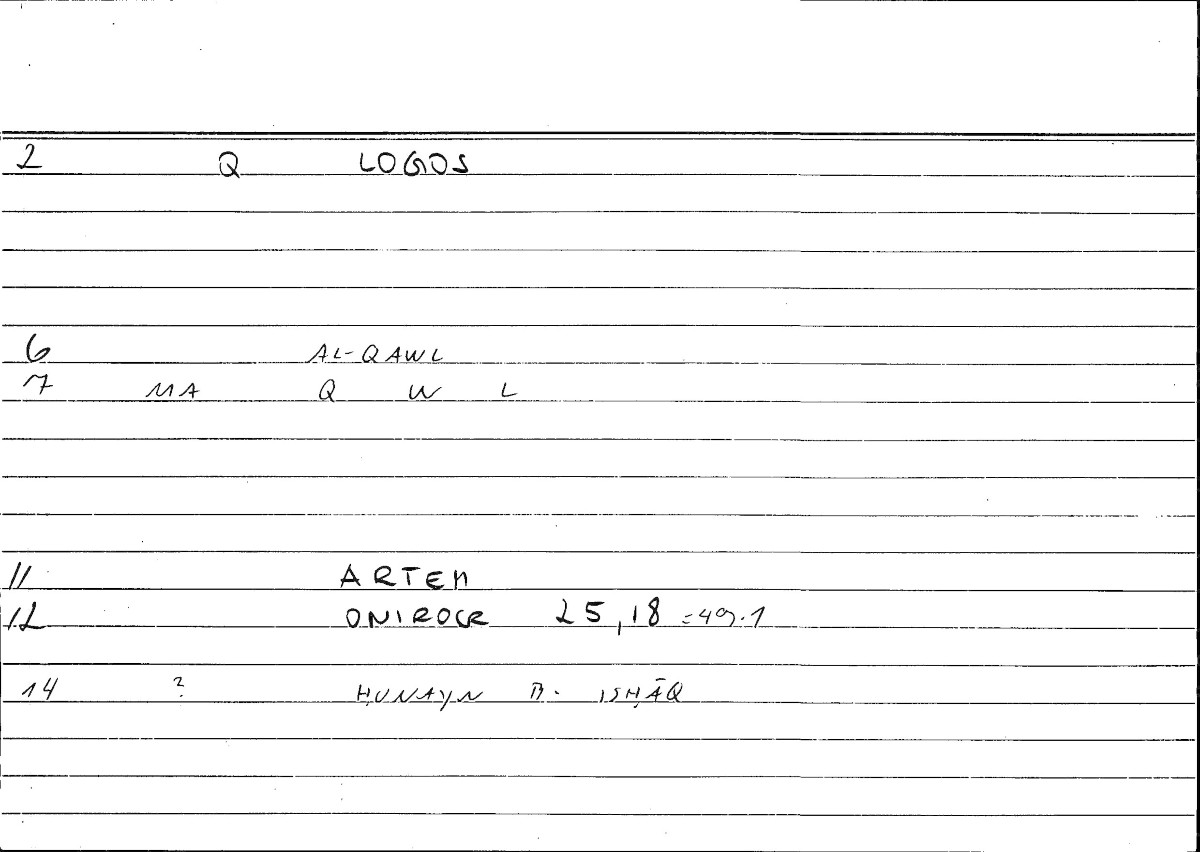 2 Q LOGOS
6 AL-QAWL
7 MA Q W L
11 ARTEM
12 ONIROCR 25,18 =49.1
14 ? ḤUNAYN B. ISḤĀQ